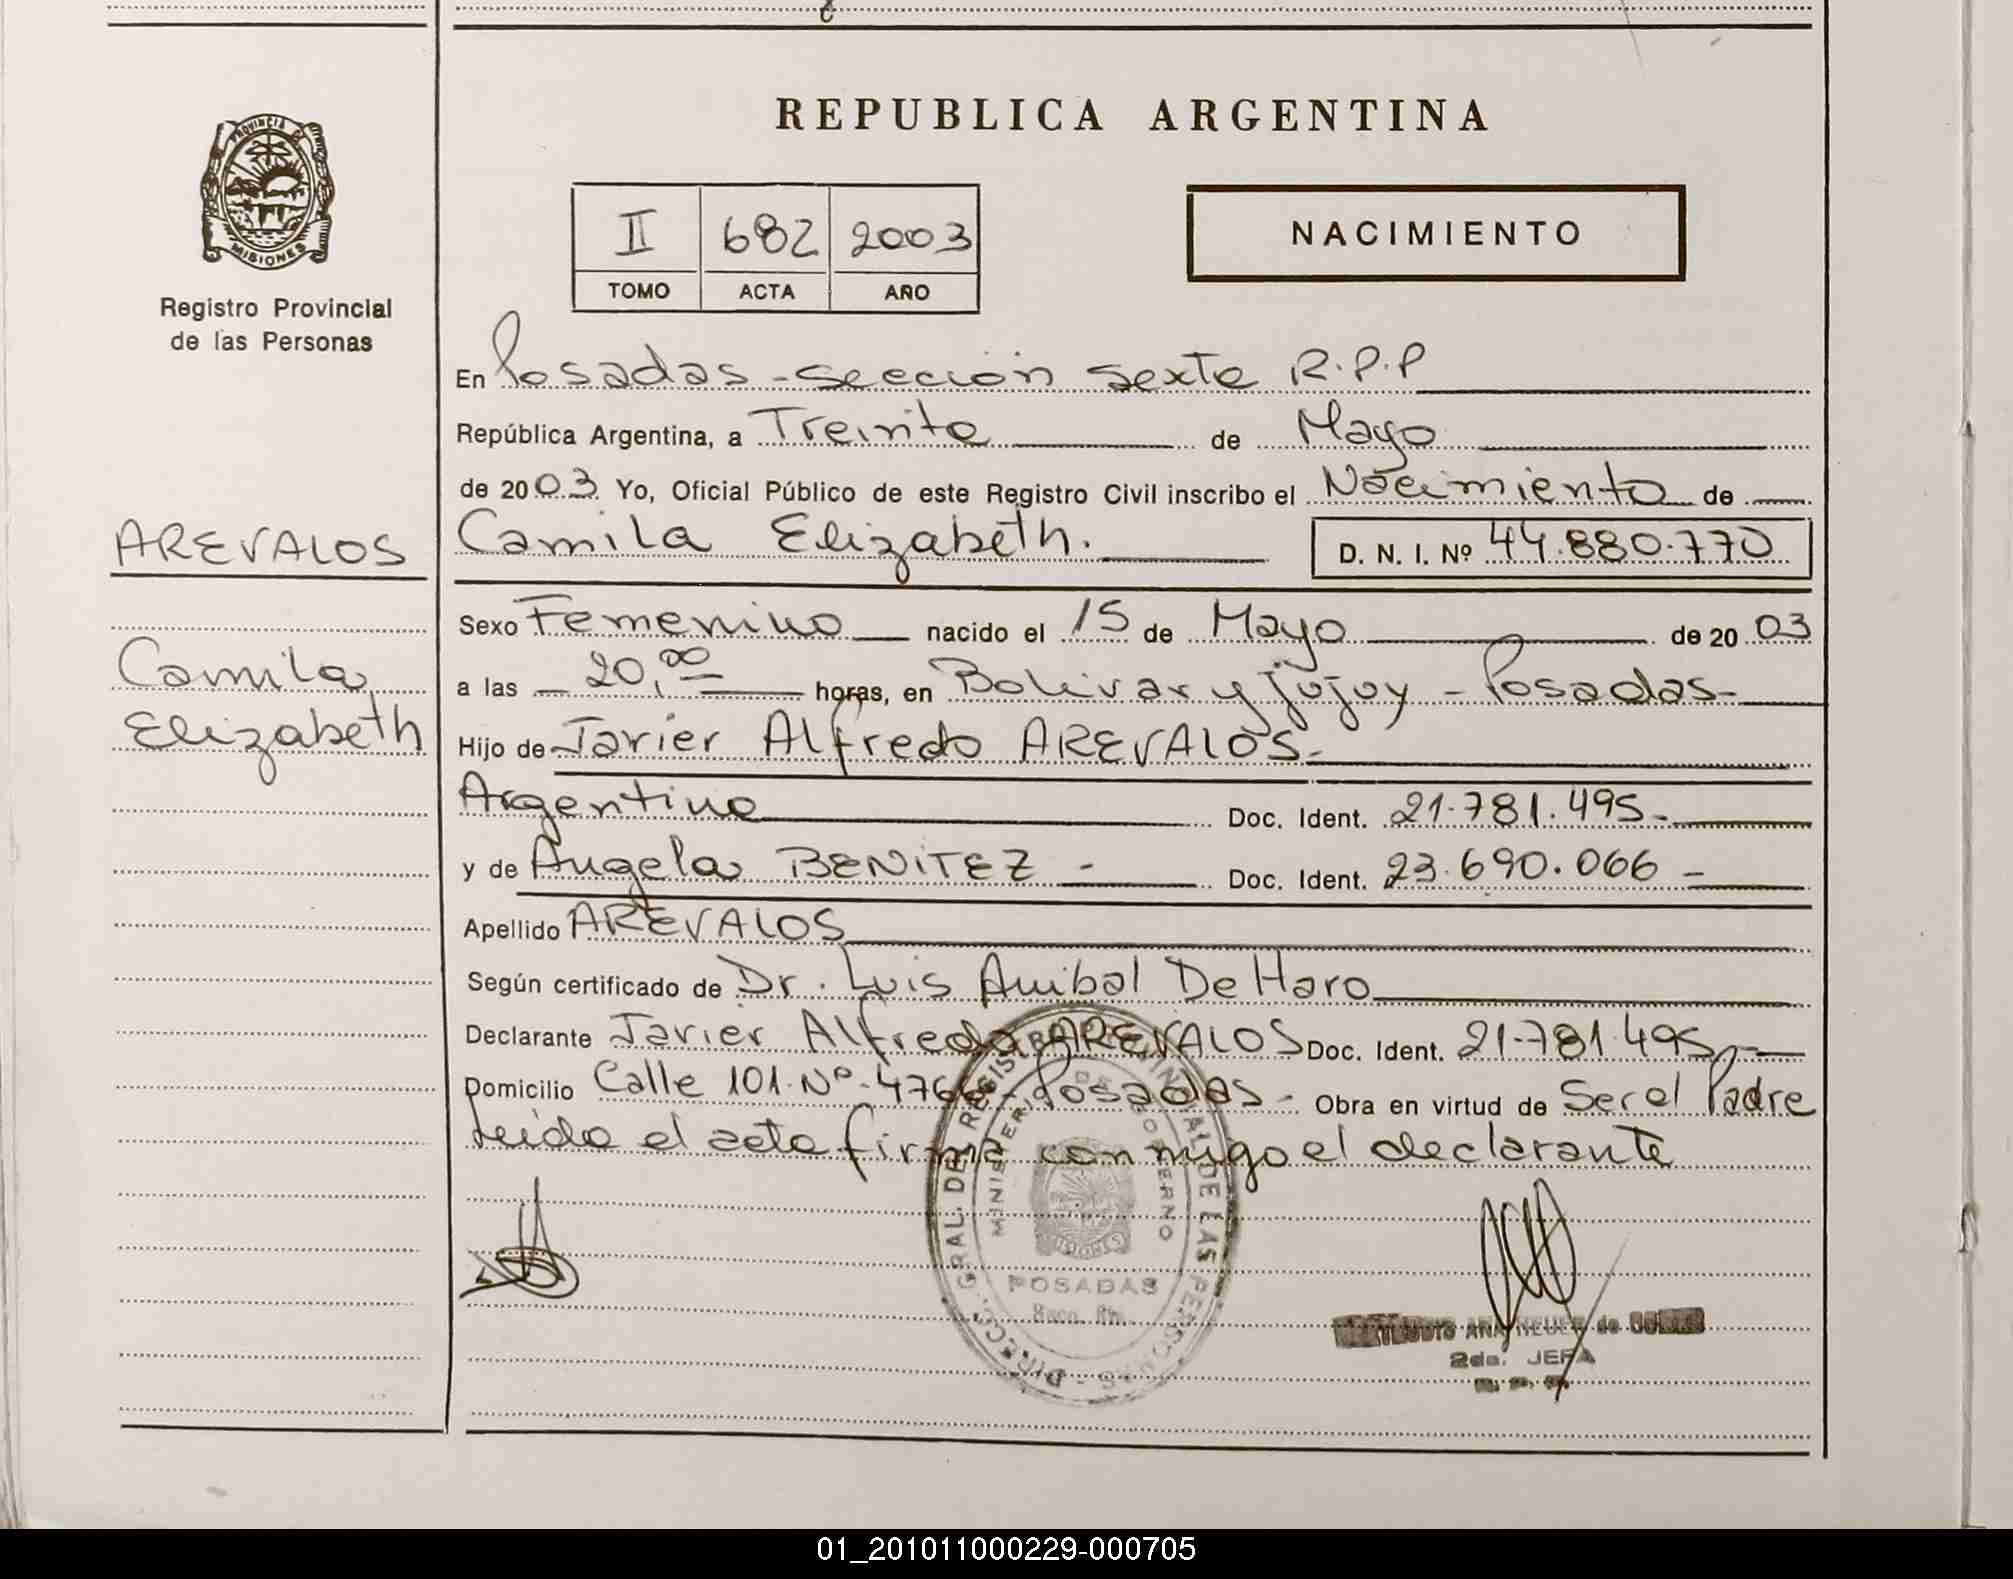 REPUBLICA ARGENTINA
PROVINCIA DE
MISIONES
Registro Provincial
de las Personas
II 682 2003
TOMO ACTA AÑO
NACIMIENTO
En Posadas - Sección Sexta R.P.P
República Argentina, a Treinta de Mayo
de 2003 Yo, Oficial Público de este Registro Civil inscribo el Nacimiento de
AREVALOS
Camila Elizabeth. D. N. I. Nº 44.880.770
Sexo Femenino nacido el 15 de Mayo de 2003
Camila
Elizabeth
a las 20,00 horas, en Bolivar y Jujuy - Posadas-
Hijo de Javier Alfredo AREVALOS-
Argentino Doc. Ident. 21.781.495-
y de Angela BENITEZ - Doc. Ident. 23.690.066 -
Apellido AREVALOS
Según certificado de Dr. Luis Anibal De Haro
Declarante Javier Alfredo AREVALOS Doc. Ident. 21.781.495,-
Domicilio Calle 101 Nº 4766 - Posadas - Obra en virtud de Ser el Padre
Leida el acta firma conmigo el declarante
DIRECC. GRAL. DEL REGISTRO PROVINCIAL DE LAS PERSONAS
MINISTERIO DE GOBIERNO
MISIONES
POSADAS
ANA de
2da. JEFA
R. P. P.
01_201011000229-000705